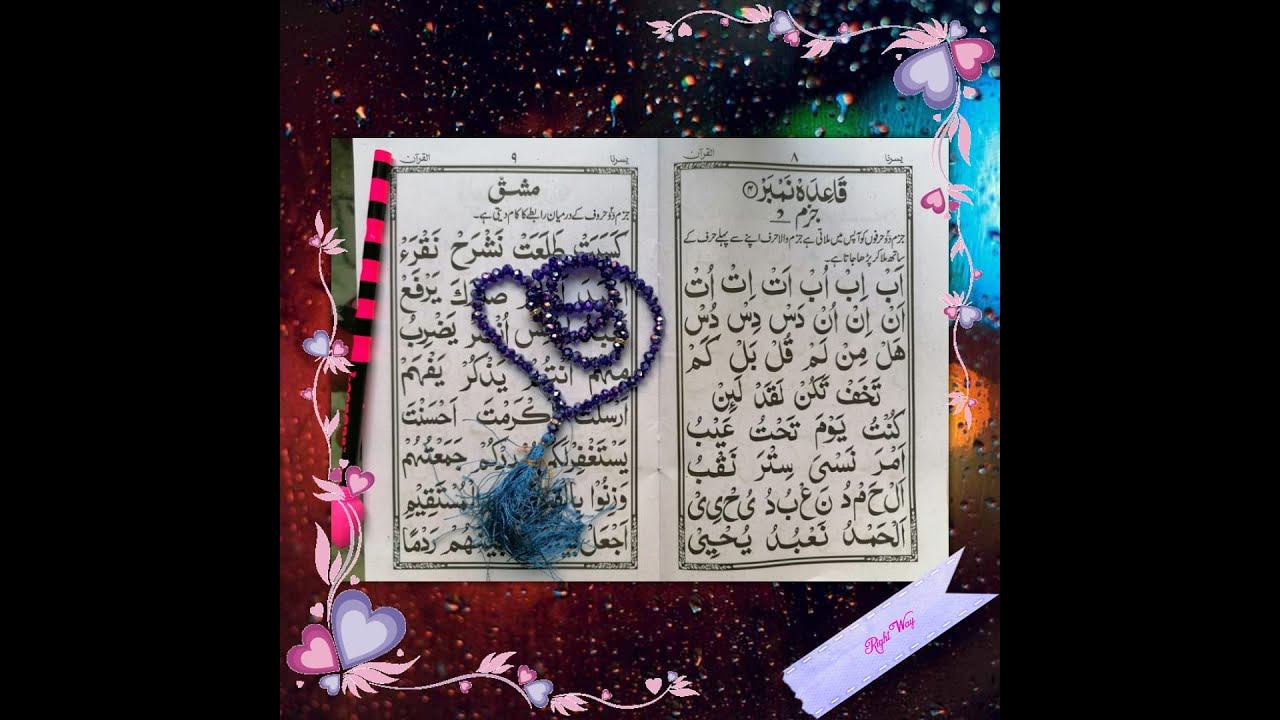 يسرنا ٨ القرآن
قَاعِدَہ نَمْبَر ۴
جزم ـْ
جزم دو حرفوں کو آپس میں ملاتی ہے جزم والا حرف اپنے سے پہلے حرف کے
ساتھ ملا کر پڑھا جاتا ہے۔
اَبْ اِبْ اُبْ اَتْ اِتْ اُتْ
اَنْ اِنْ اُنْ دَسْ دِسْ دُسْ
هَلْ مِنْ لَمْ قُلْ بَلْ كَمْ
تَخَفْ تَكُنْ لَقَدْ لَئِنْ
كُنْتُ يَوْمَ تَحْتُ غَيْبُ
اَمْرَ نَسْىَ سِتْرَ نَقْبُ
اَلْ حَمْ دُ نَ عْ بُ دُ يُ حْ يِ يْ
اَلْحَمْدُ نَعْبُدُ يُحْيِيْ
يسرنا ٩ القرآن
مشق
جزم دو حروف کے درمیان رابطے کا کام دیتی ہے۔
كَسَبَتْ طَلَعَتْ نَشْرَحْ نَقْرَءْ
يَرْفَعْ
يَضْرِبُ
مِنْهُمْ اَنْتُمْ يَذْكُرْ يَفْهَمْ
اَرْسَلْتَ اَحْسَنْتَ
يَسْتَغْفِرْلَكُمْ جَمَعْتُهُمْ
وَزِنُوْا الْمُسْتَقِيْمِ
اَجْعَلْ رَدْمًا
Right Way